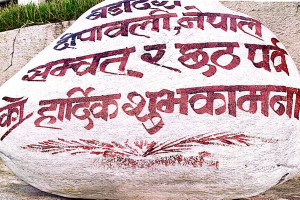 बडादशैं
दीपावली, नेपाल
सम्वत् र छठ पर्व
को हार्दिक शुभकामना